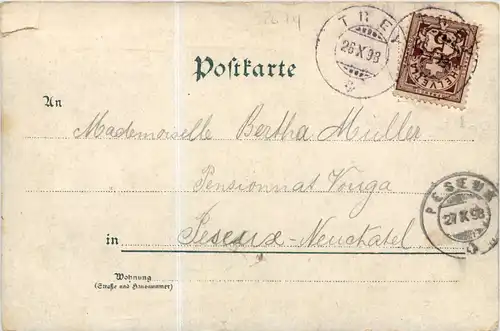 TREY
26 X 98
HELVETIA
Postkarte
An
Mademoiselle Bertha Muller
Pensionnat Vouga
PESEUX
27 X 98
in Peseux-Neuchatel
Wohnung
(Straße und Hausnummer)